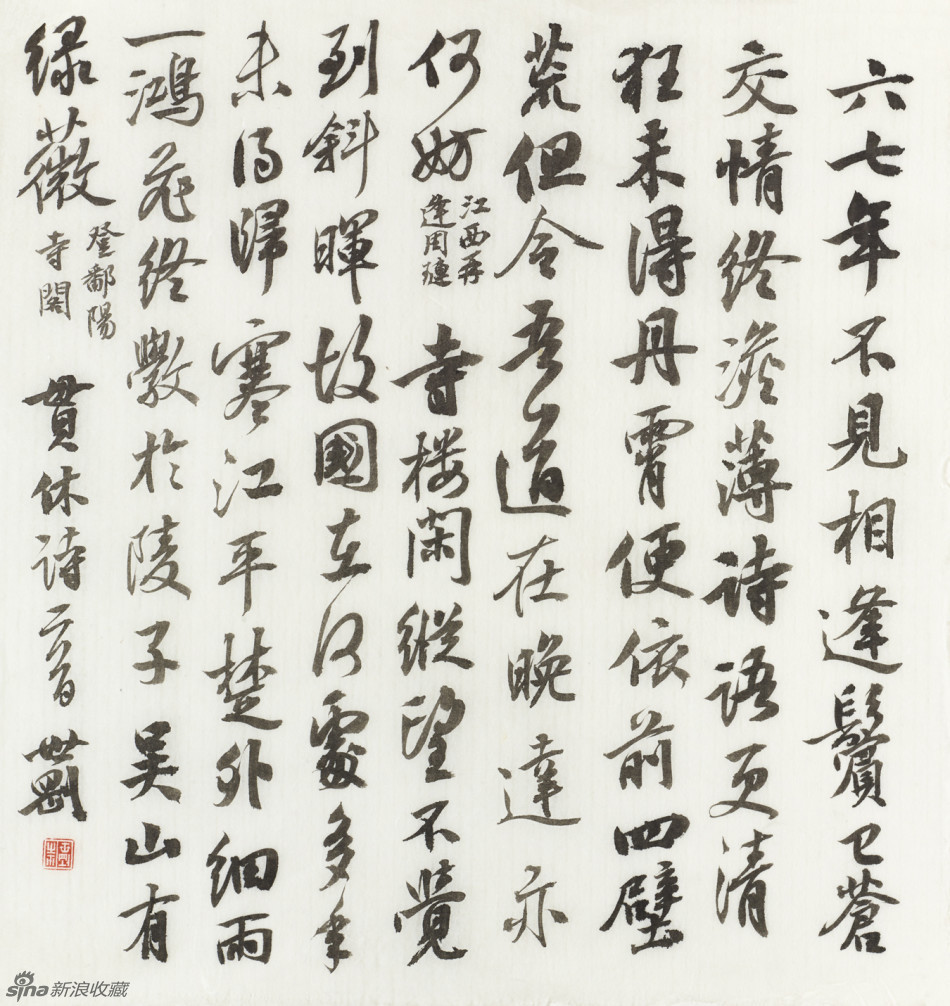 六七年不見相逢鬢已蒼
交情終澹薄詩語更清
狂未得丹霄便依前四壁
荒但令吾道在晚達亦
何妨
江西再
逢周璉
寺楼閑縱望不覺
到斜暉故國在何處多年
未得歸寒江平楚外細雨
一鴻飛終斆於陵子吴山有
緑薇
登鄱陽
寺閣
貫休詩二首
世剛
sina新浪收藏